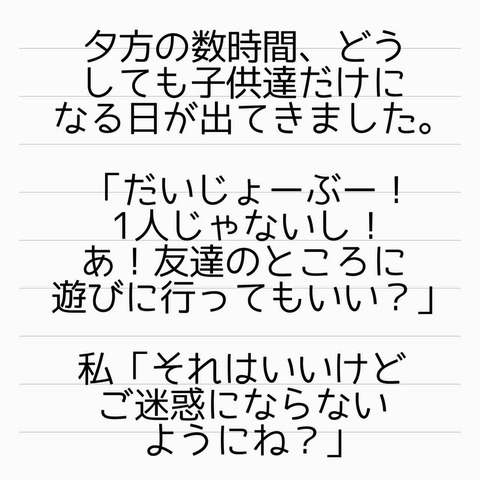 夕方の数時間、どう
しても子供達だけに
なる日が出てきました。
「だいじょーぶー！
1人じゃないし！
あ！友達のところに
遊びに行ってもいい？」
私「それはいいけど
ご迷惑にならない
ようにね？」